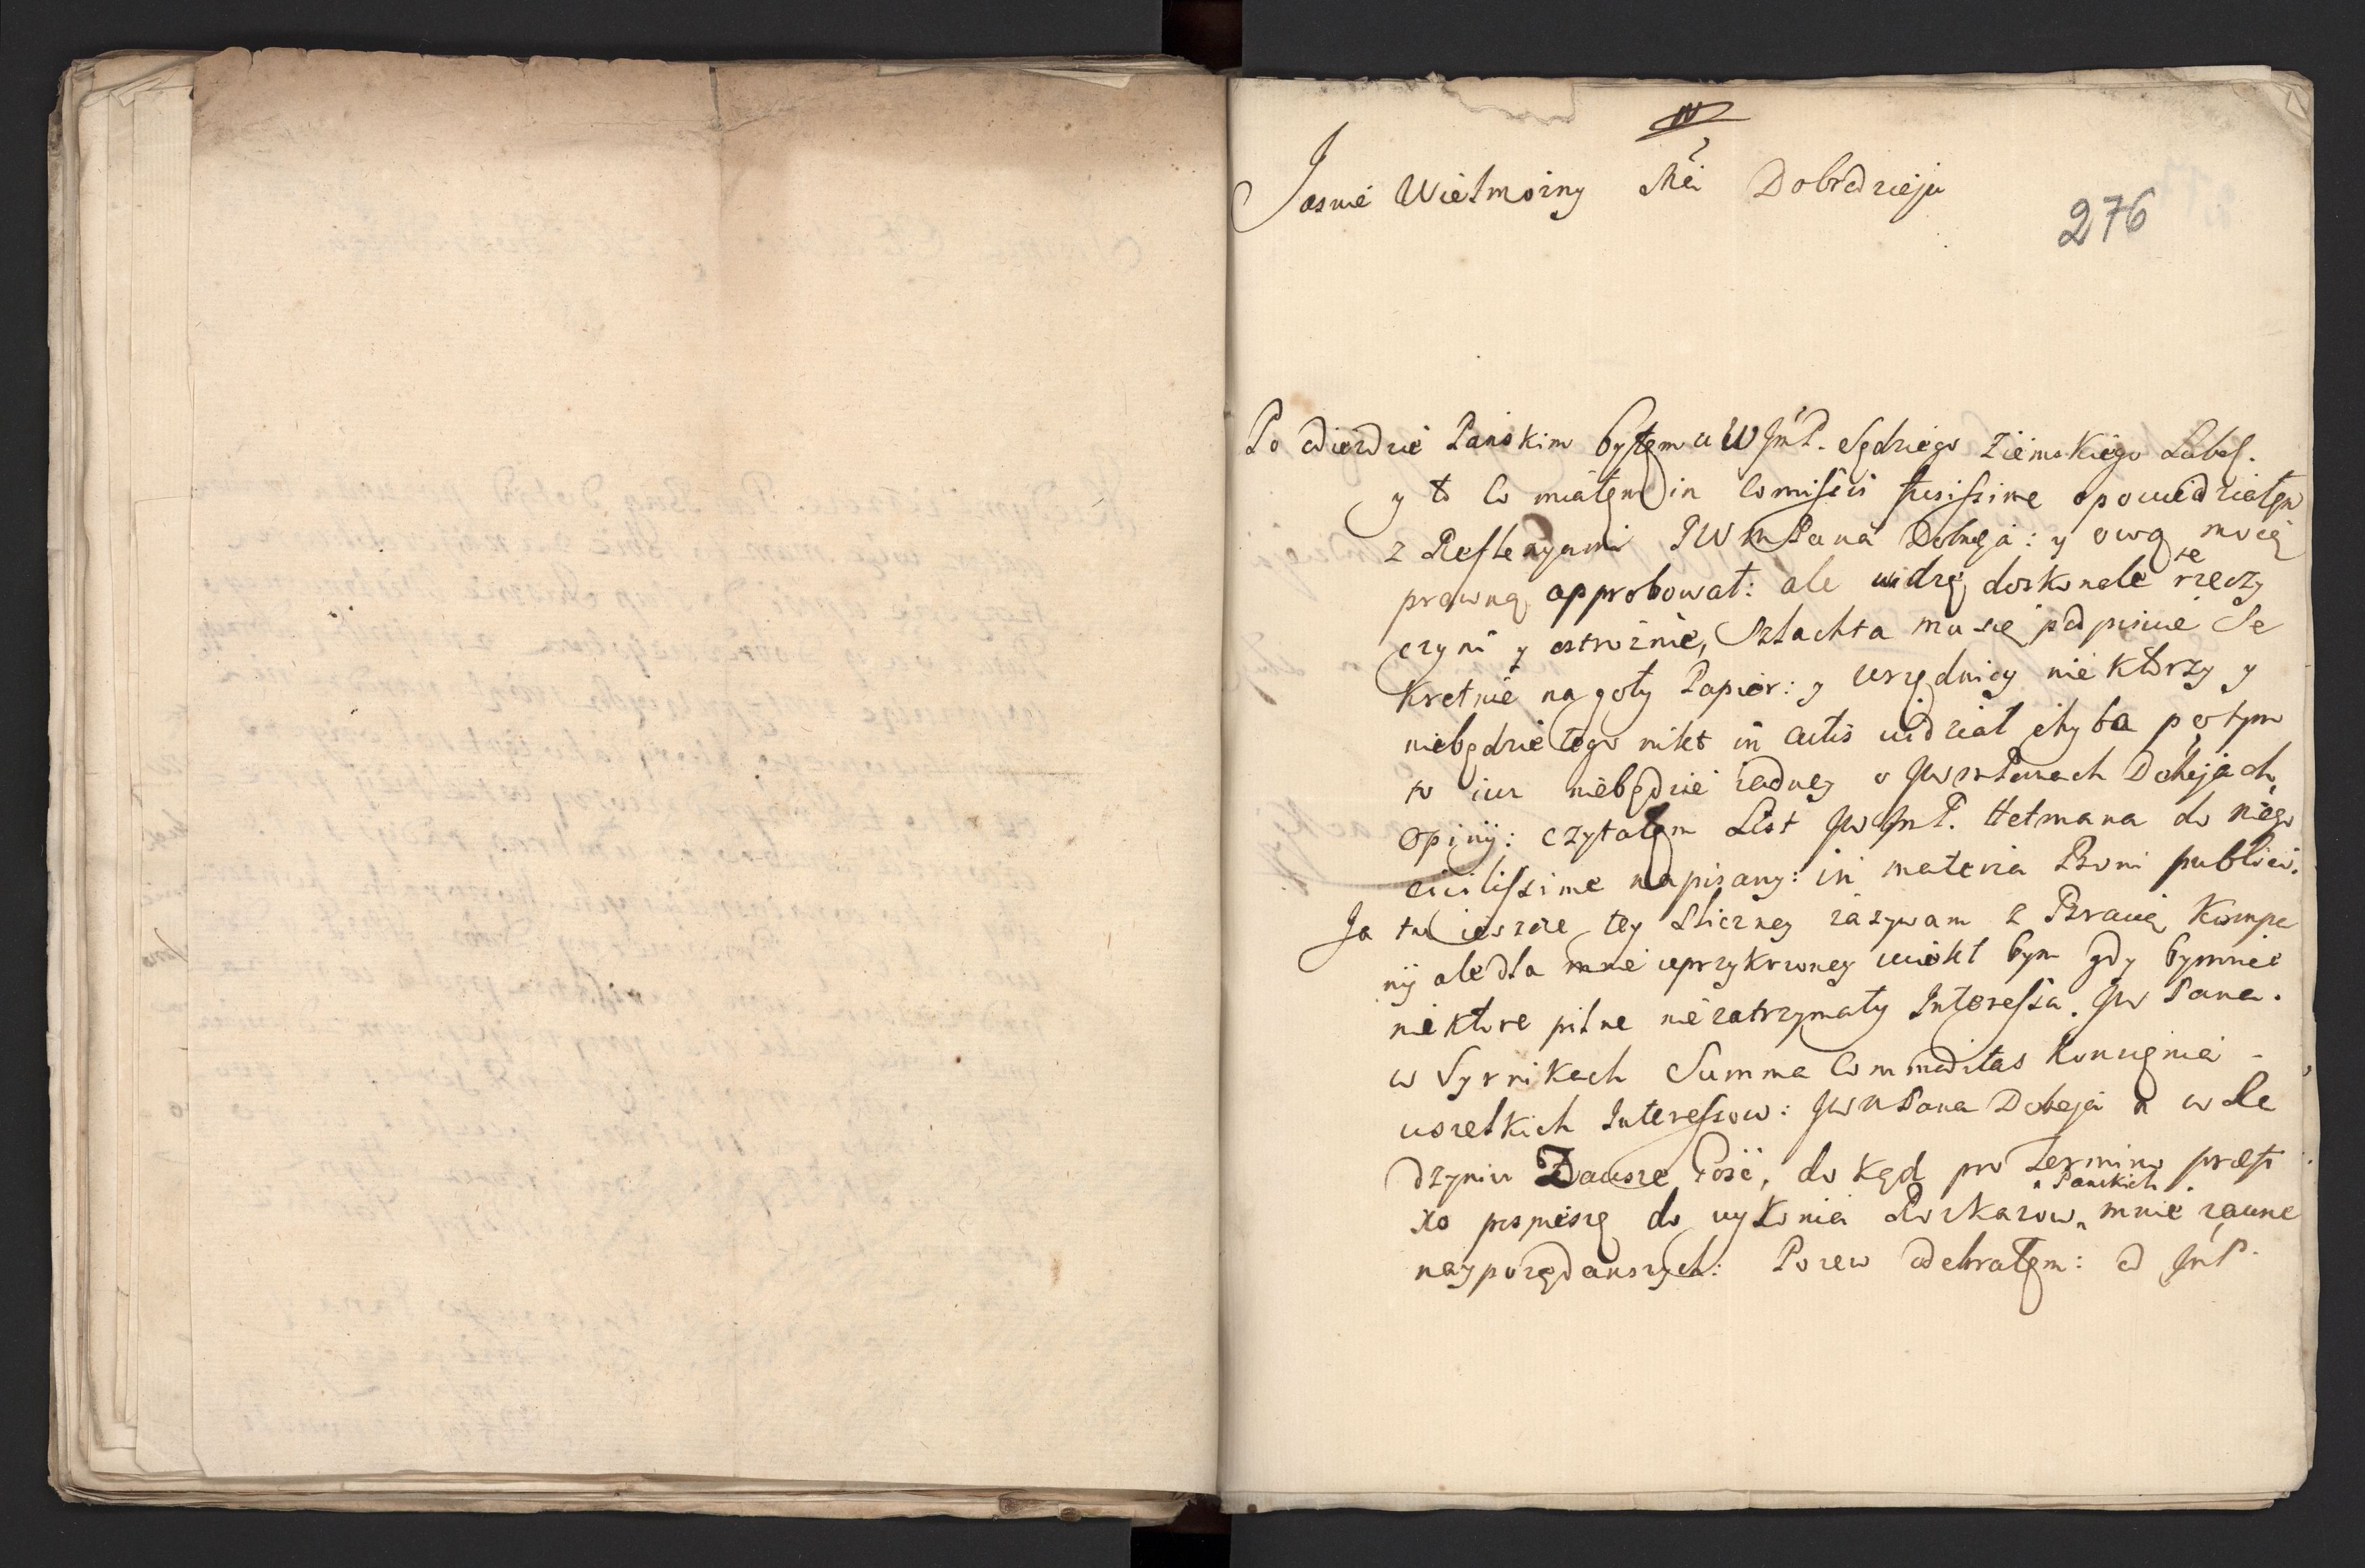 Jasnie Wielmożny Mci Dobrodzieju
276
Po odiezdzie Panskim byłęm u W JmP. Sędziego Ziemskiego Lubel.
y to co miałęm in Comissis fusissime opowiedziałęm
z Reflexyami JW mPana Dobreja: y ową moię
prawną approbował: ale widzę doskonale że rzeczy
czyni y ostroznie, Szlachta mu się podpisuie Se
kretnie na goły Papier: y Urzędnicy niektorzy y
niebędzie tego nikt in Actis widział chyba potym
to iuz niebędzie żadney o JW mPanach Dobejach
opinij: czytałęm List JW JmP. Hetmana do niego
civilissime napisany: in materia Boni publici.
Ja tu ieszcze tey sliczney zażywam z Bracią Kompa
nij ale dla mnie uprzykrzoney uciekł bym gdy bymnie
niektore pilne niezatrzymały Interessa. JW Pana.
w Syrnikach Summa Commoditas
wszelkich Interessow: JW mPana Dobeja w Le
dzyniu Zawsze, do kąd pro Termino præfi
xo pospieszę do Rozkazow Panskich mnie zawsze
nayporządanszych: odebrałęm: od JmP.